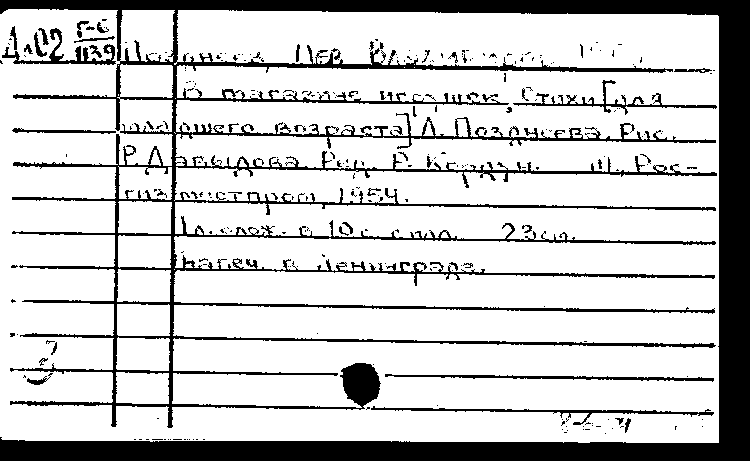 Дл02 Г-6
1139
Позднеев, Лев Владимирович
В магазине игрушек. Стихи [для
младшего возраста] Л. Позднеева. Рис.
Р. Давыдова. Ред. Р. М., Рос-
гизместпром, 1954.
1 л. слож. в 10 с. с илл. 23 см.
Напеч. в Ленинграде.
3